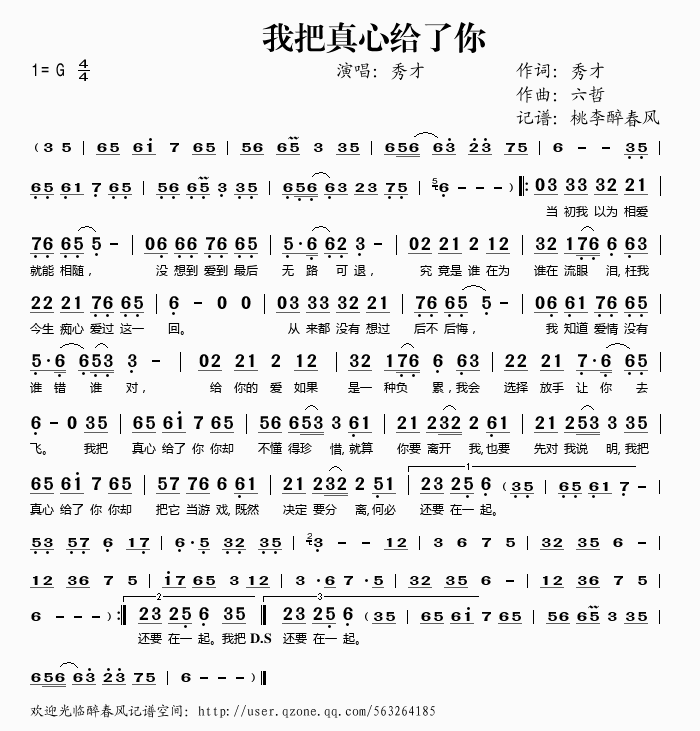 我把真心给了你
1= G 4/4 演唱：秀才 作词：秀才
作曲：六哲
记谱：桃李醉春风
( 3 5 | 65 6i 7 65 | 56 65 3 35 | 656 63 23 75 | 6 - - 35 |
65 61 7 65 | 56 65 3 35 | 656 63 23 75 | 6 - - - ) ‖: 03 33 32 21 |
当 初我 以为 相爱
76 65 5 - | 06 66 76 65 | 5·6 62 3 - | 02 21 2 12 | 32 176 6 63 |
就能 相随， 没 想到 爱到 最后 无 路 可 退， 究 竟是 谁 在为 谁在 流眼 泪，枉我
22 21 76 65 | 6 - 0 0 | 03 33 32 21 | 76 65 5 - | 06 61 76 65 |
今生 痴心 爱过 这一 回。 从 来都 没有 想过 后不 后悔， 我 知道 爱情 没有
5·6 653 3 - | 02 21 2 12 | 32 176 6 63 | 22 21 7·6 65 |
谁 错 谁 对， 给 你的 爱 如果 是一 种负 累，我会 选择 放手 让 你 去
6 - 0 35 | 65 6i 7 65 | 56 653 3 61 | 21 232 2 61 | 21 253 3 35 |
飞。 我把 真心 给了 你 你却 不懂 得珍 惜，就算 你要 离开 我，也要 先对 我说 明，我把
65 6i 7 65 | 57 76 6 61 | 21 232 2 51 | 1 23 25 6 (35 | 65 61 7 - |
真心 给了 你 你却 把它 当游 戏，既然 决定 要分 离，何必 还要 在一 起。
53 57 6 17 | 6·5 32 35 | 3 - - 12 | 3 6 7 5 | 32 35 6 - |
12 36 7 5 | i7 65 3 12 | 3 ·6 7 ·5 | 32 35 6 - | 12 36 7 5 |
6 - - - ) :‖ 2 23 25 6 35 ‖ 3 23 25 6 (35 | 65 61 7 65 | 56 65 3 35 |
还要 在一 起。我把 D.S 还要 在一 起。
656 63 23 75 | 6 - - - ) ‖
欢迎光临醉春风记谱空间：http://user.qzone.qq.com/563264185